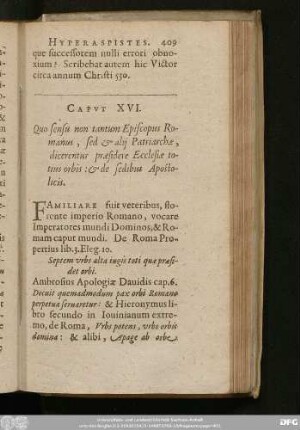 HYPERASPISTES. 409
que successorem nulli errori obno-
xium? Scribebat autem hic Victor
circa annum Christi 530.
CAPVT XVI.
Quo sensu non tantum Episcopus Ro-
manus, sed & alij Patriarchæ,
dicerentur præsidere Ecclesiæ to-
tius orbis: & de sedibus Aposto-
licis.
FAMILIARE fuit veteribus, flo-
rente imperio Romano, vocare
Imperatores mundi Dominos, & Ro-
mam caput mundi. De Roma Pro-
pertius lib. 3. Eleg. 10.
Septem vrbs alta iugis toti quæ præsi-
det orbi.
Ambrosius Apologiæ Dauidis cap. 6.
Docuit quemadmodum pax orbi Romano
perpetua seruaretur: & Hieronymus li-
bro secundo in Iouinianum extre-
mo, de Roma, Vrbs potens, vrbs orbis
domina: & alibi, apage ab orbe
DFG